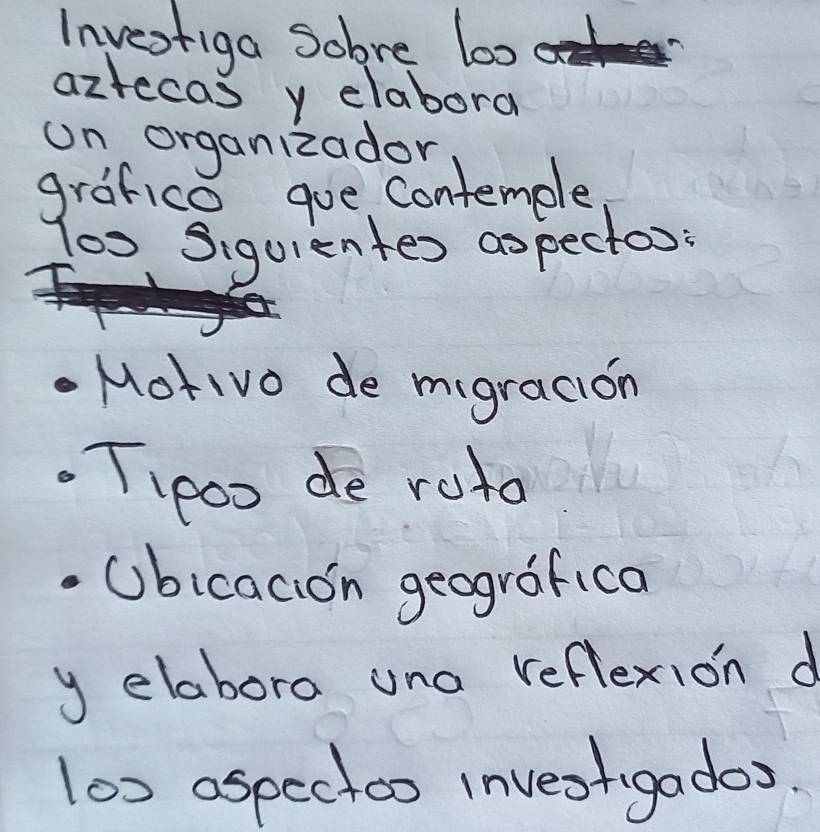 Investiga sobre los
aztecas y elabora
un organizador
gráfico que contemple
los siguientes aspectos:
• Motivo de migración
• Tipos de ruta
• Ubicación geográfica
y elabora una reflexión d
los aspectos investigados.